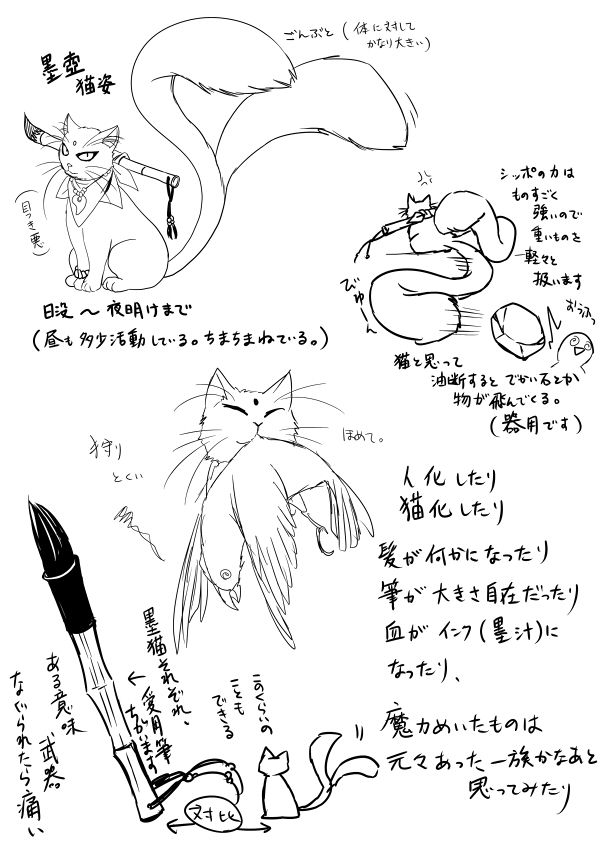 墨壺
猫姿
ごんぶと(体に対して
かなり大きい)
(目つき悪)
日没〜夜明けまで
(昼も多少活動している。ちまちまねている。)
シッポの力は
ものすごく
強いので
重いものを
軽々と
扱います
びゅーん
おうふっ
猫と思って
油断するとでかい石とか
物が飛んでくる。
(器用です)
狩り
とくい
ほめて。
人化したり
猫化したり
髪が何かになったり
筆が大きさ自在だったり
血がインク(墨汁)に
なったり、
魔力めいたものは
元々あった一族かなあと
思ってみたり
墨猫それぞれ、
愛用筆
ちがいます
このくらいの
ことも
できる
ある意味、武器
なぐられたら痛い
対比